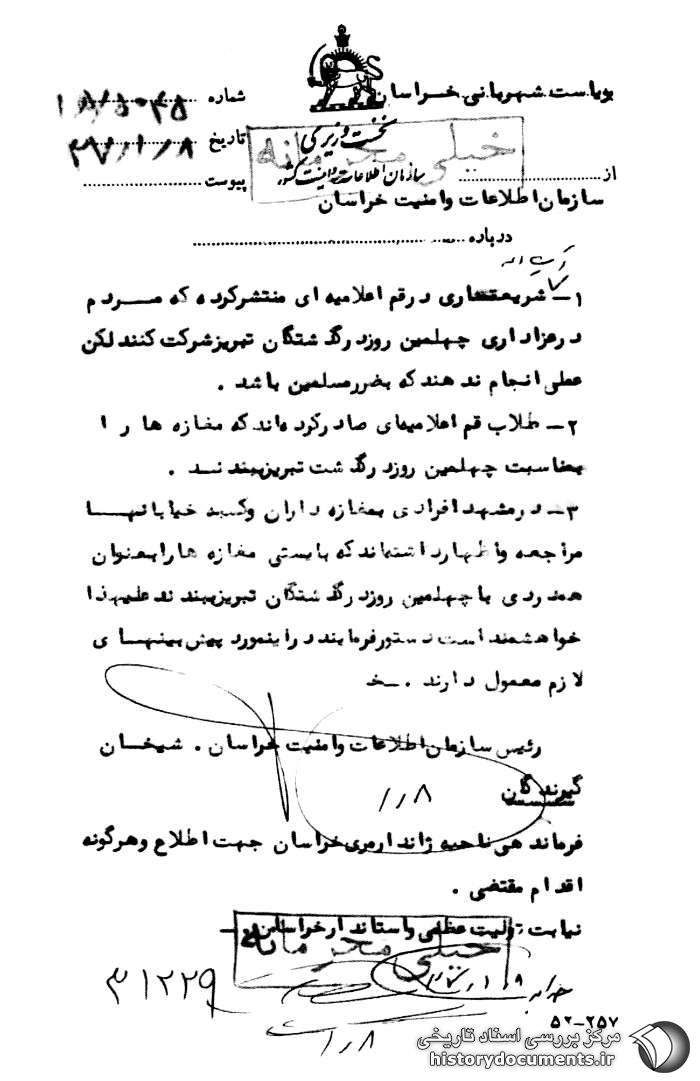 بریاست شهربانی خراسان
شماره ۱۸/۵۰۴۵
نخست وزیری
تاریخ ۳۷/۱/۸
خیلی محرمانه
از
سازمان اطلاعات و امنیت کشور
پیوست
سازمان اطلاعات وامنیت خراسان
درباره
۱– شریعتمداری درقم اعلامیه ای منتشرکرده که مردم
درعزاداری چهلمین روزدرگذشتگان تبریزشرکت کنندلکن
عملی انجام ندهندکه بضررمسلمین باشد .
۲– طلاب قم اعلامیه‌ای صادرکرده‌اندکه مغازه ها را
بمناسبت چهلمین روزدرگذشت تبریزببندند .
۳– درمشهدافرادی بمغازه داران وکسبه خیابانها
مراجعه واظهارداشته‌اندکه بایستی مغازه هارابعنوان
همدردی باچهلمین روزدرگذشتگان تبریزببندندعلیهذا
خواهشمنداست دستورفرمایند دراینمورد پیش بینیهای
لازم معمول دارند .–خ
رئیس سازمان اطلاعات وامنیت خراسان . شیخان
۱/۸
گیرندگان
فرماندهی ناحیه ژاندارمری خراسان جهت اطلاع وهرگونه
اقدام مقتضی .
نیابت تولیت عظمی واستاندارخراسان –
خیلی محرمانه
۳۷/۱/۹
۳۱۲۲۹
۱/۸
۵۲–۲۵۷
مرکز بررسی اسناد تاریخی
historydocuments.ir